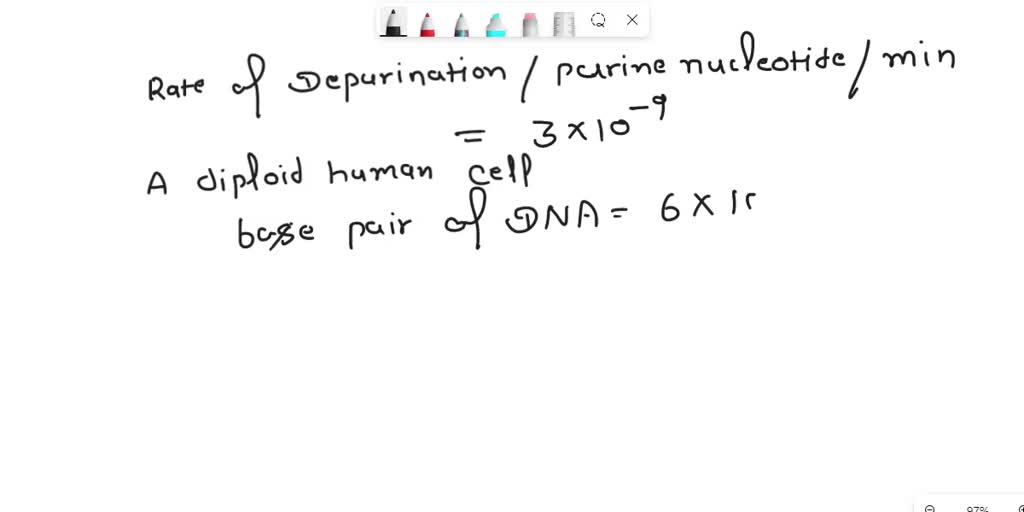 Rate of Depurination / purine nucleotide / min
= 3 × 10⁻⁹
A diploid human cell
base pair of DNA = 6 × 10
97%